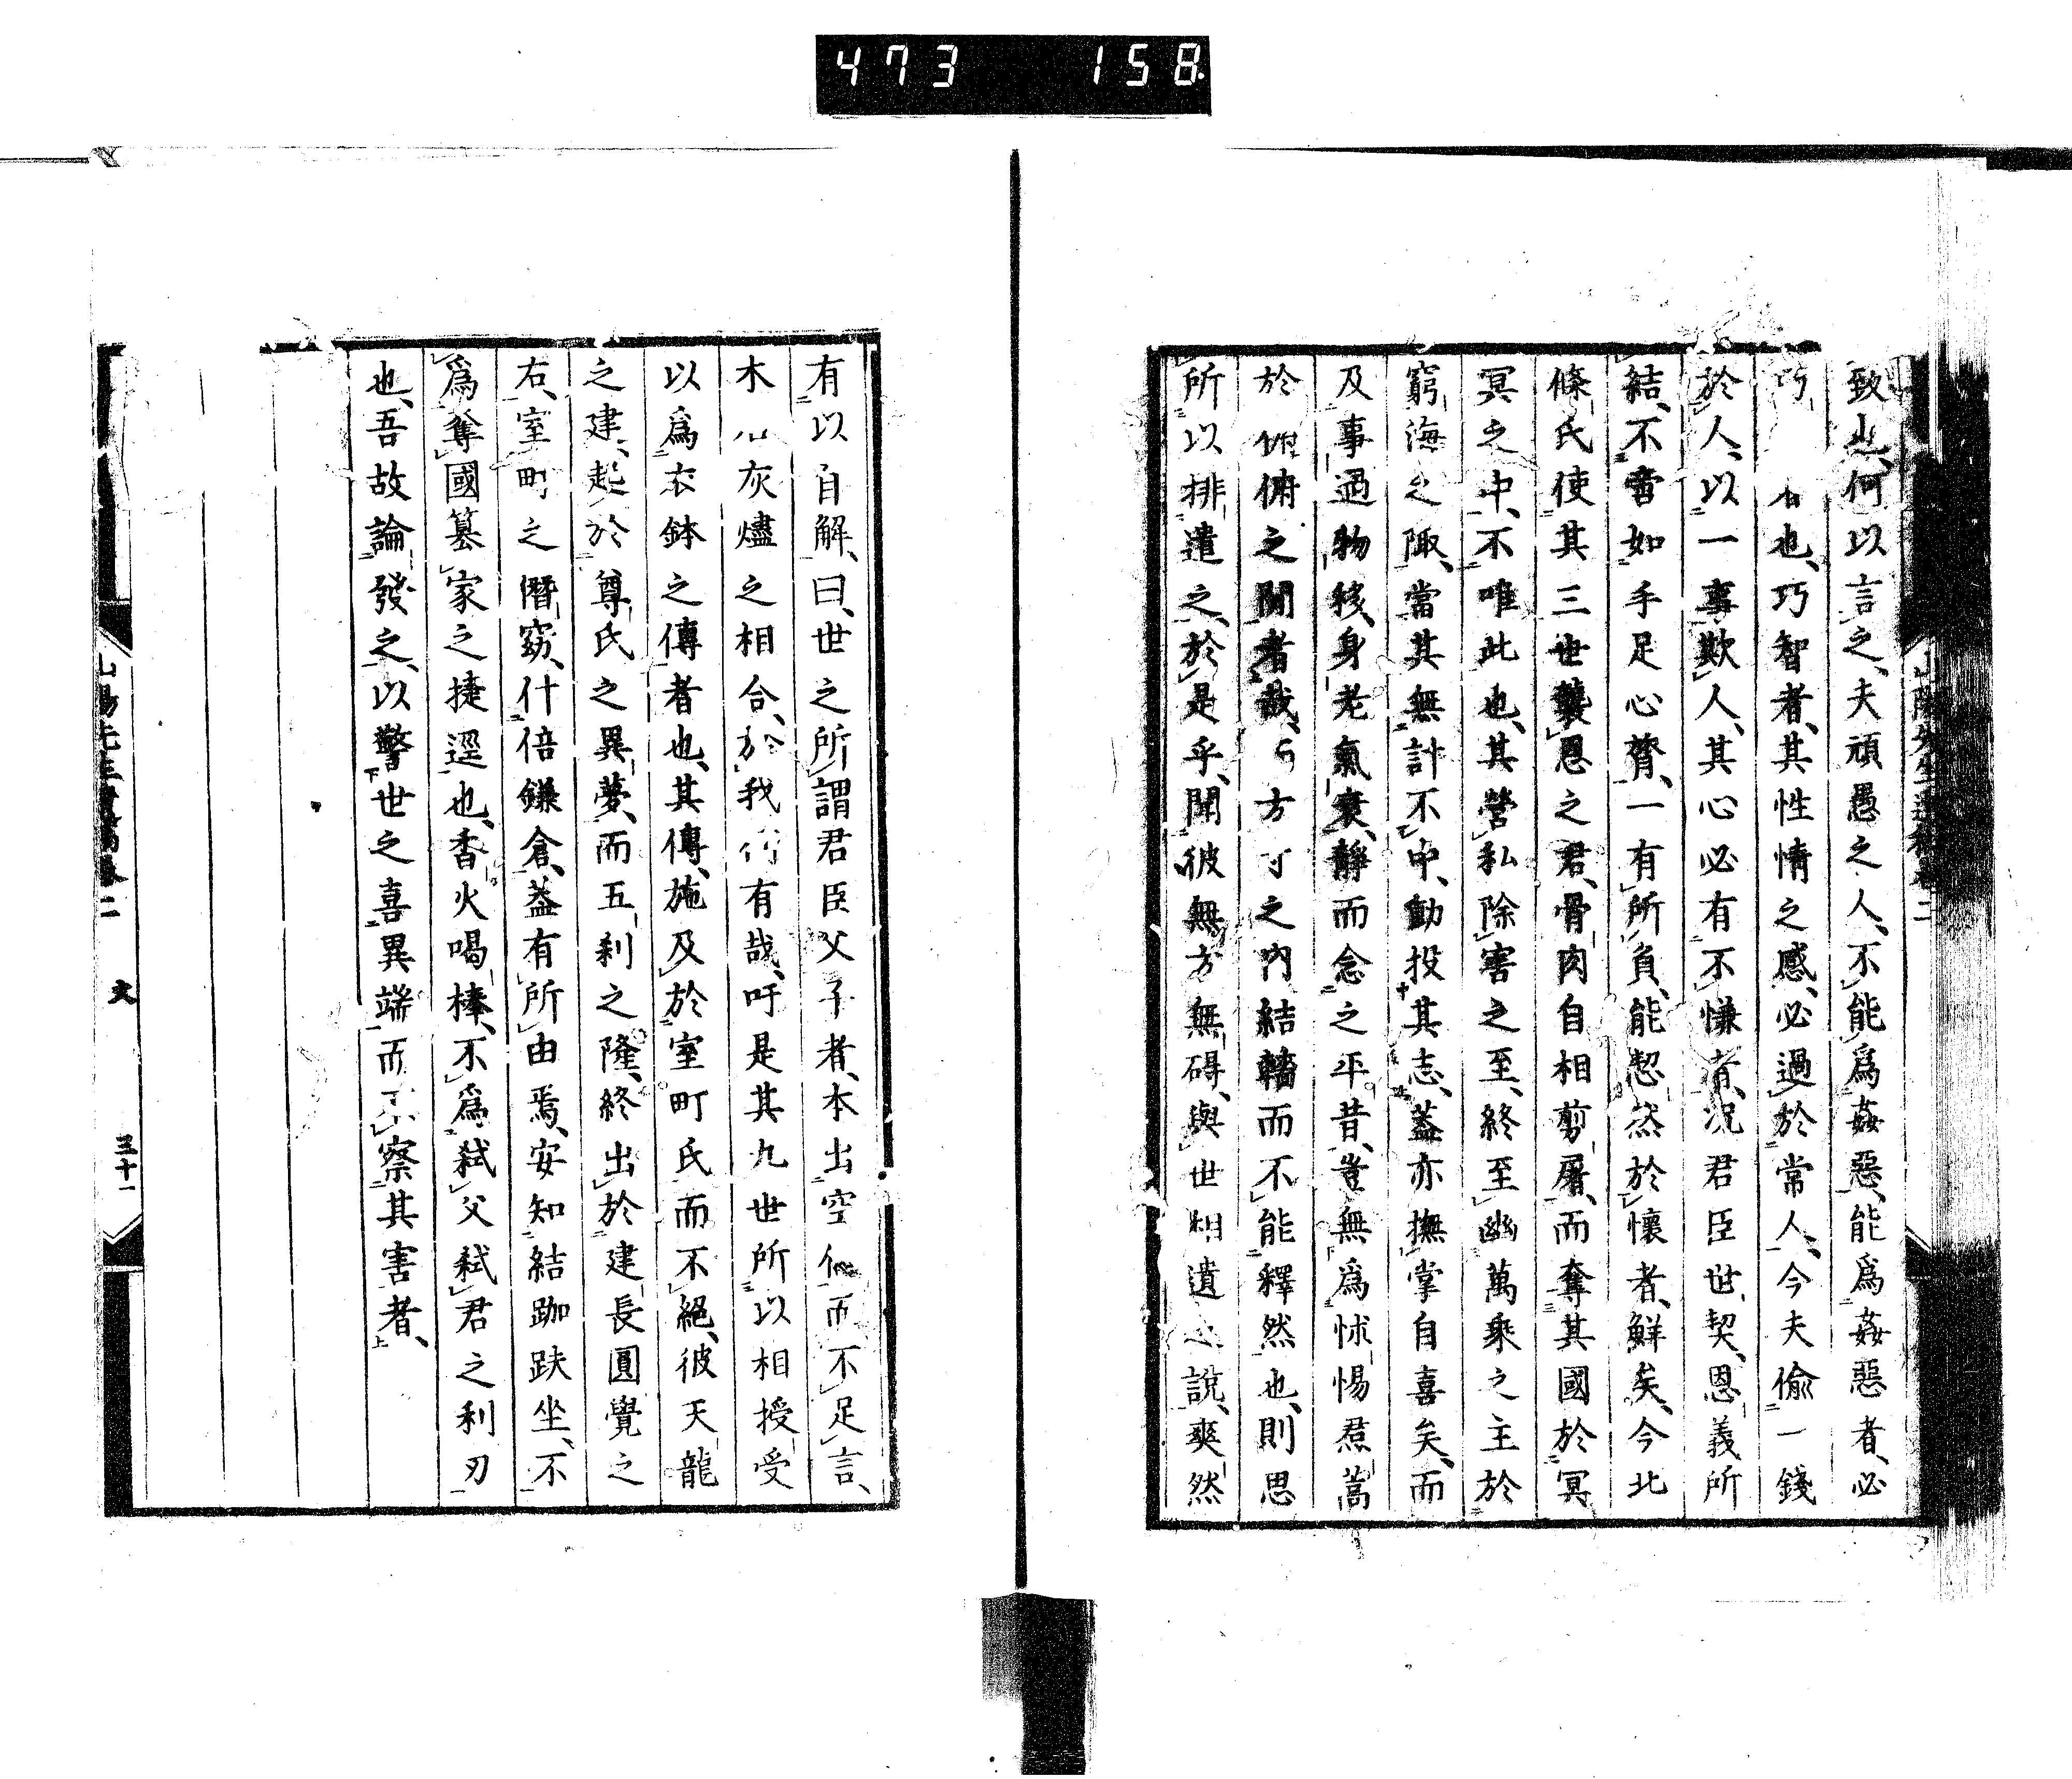 473 158
致此、何以言之、夫頑愚之人、不能爲姦惡、能爲姦惡者、必
巧智者也、巧智者、其性情之感、必過於常人、今夫偸一錢
於人、以一事欺人、其心必有不慊者、況君臣世契、恩義所
結、不啻如手足心膂、一有所負、能恝然於懷者、鮮矣、今北
條氏使其三世襲恩之君、骨肉自相剪屠、而奪其國於冥
冥之中、不唯此也、其營私除害之至、終至幽萬乘之主於
窮海之陬、當其無計不中、動投其志、蓋亦撫掌自喜矣、而
及事過物移、身老氣衰、靜而念之平昔、豈無爲怵惕焄蒿
於仰俯之間者哉、方寸之內結轖而不能釋然也、則思
所以排遣之、於是乎、聞彼無方無碍、與世相遺之說、爽然
有以自解、曰、世之所謂君臣父子者、本出空假而不足言、
木灰燼之相合、於我何有哉、吁是其九世所以相授受
以爲衣鉢之傳者也、其傳、施及於室町氏而不絕、彼天龍
之建、起於尊氏之異夢、而五刹之隆、終出於建長圓覺之
右、室町之僭竊、什倍鎌倉、蓋有所由焉、安知結跏趺坐、不
爲奪國篡家之捷逕也、香火喝棒、不爲弑父弑君之利刃
也、吾故論發之、以警世之喜異端而不察其害者、
山陽先生遺稿卷二 文 三十一